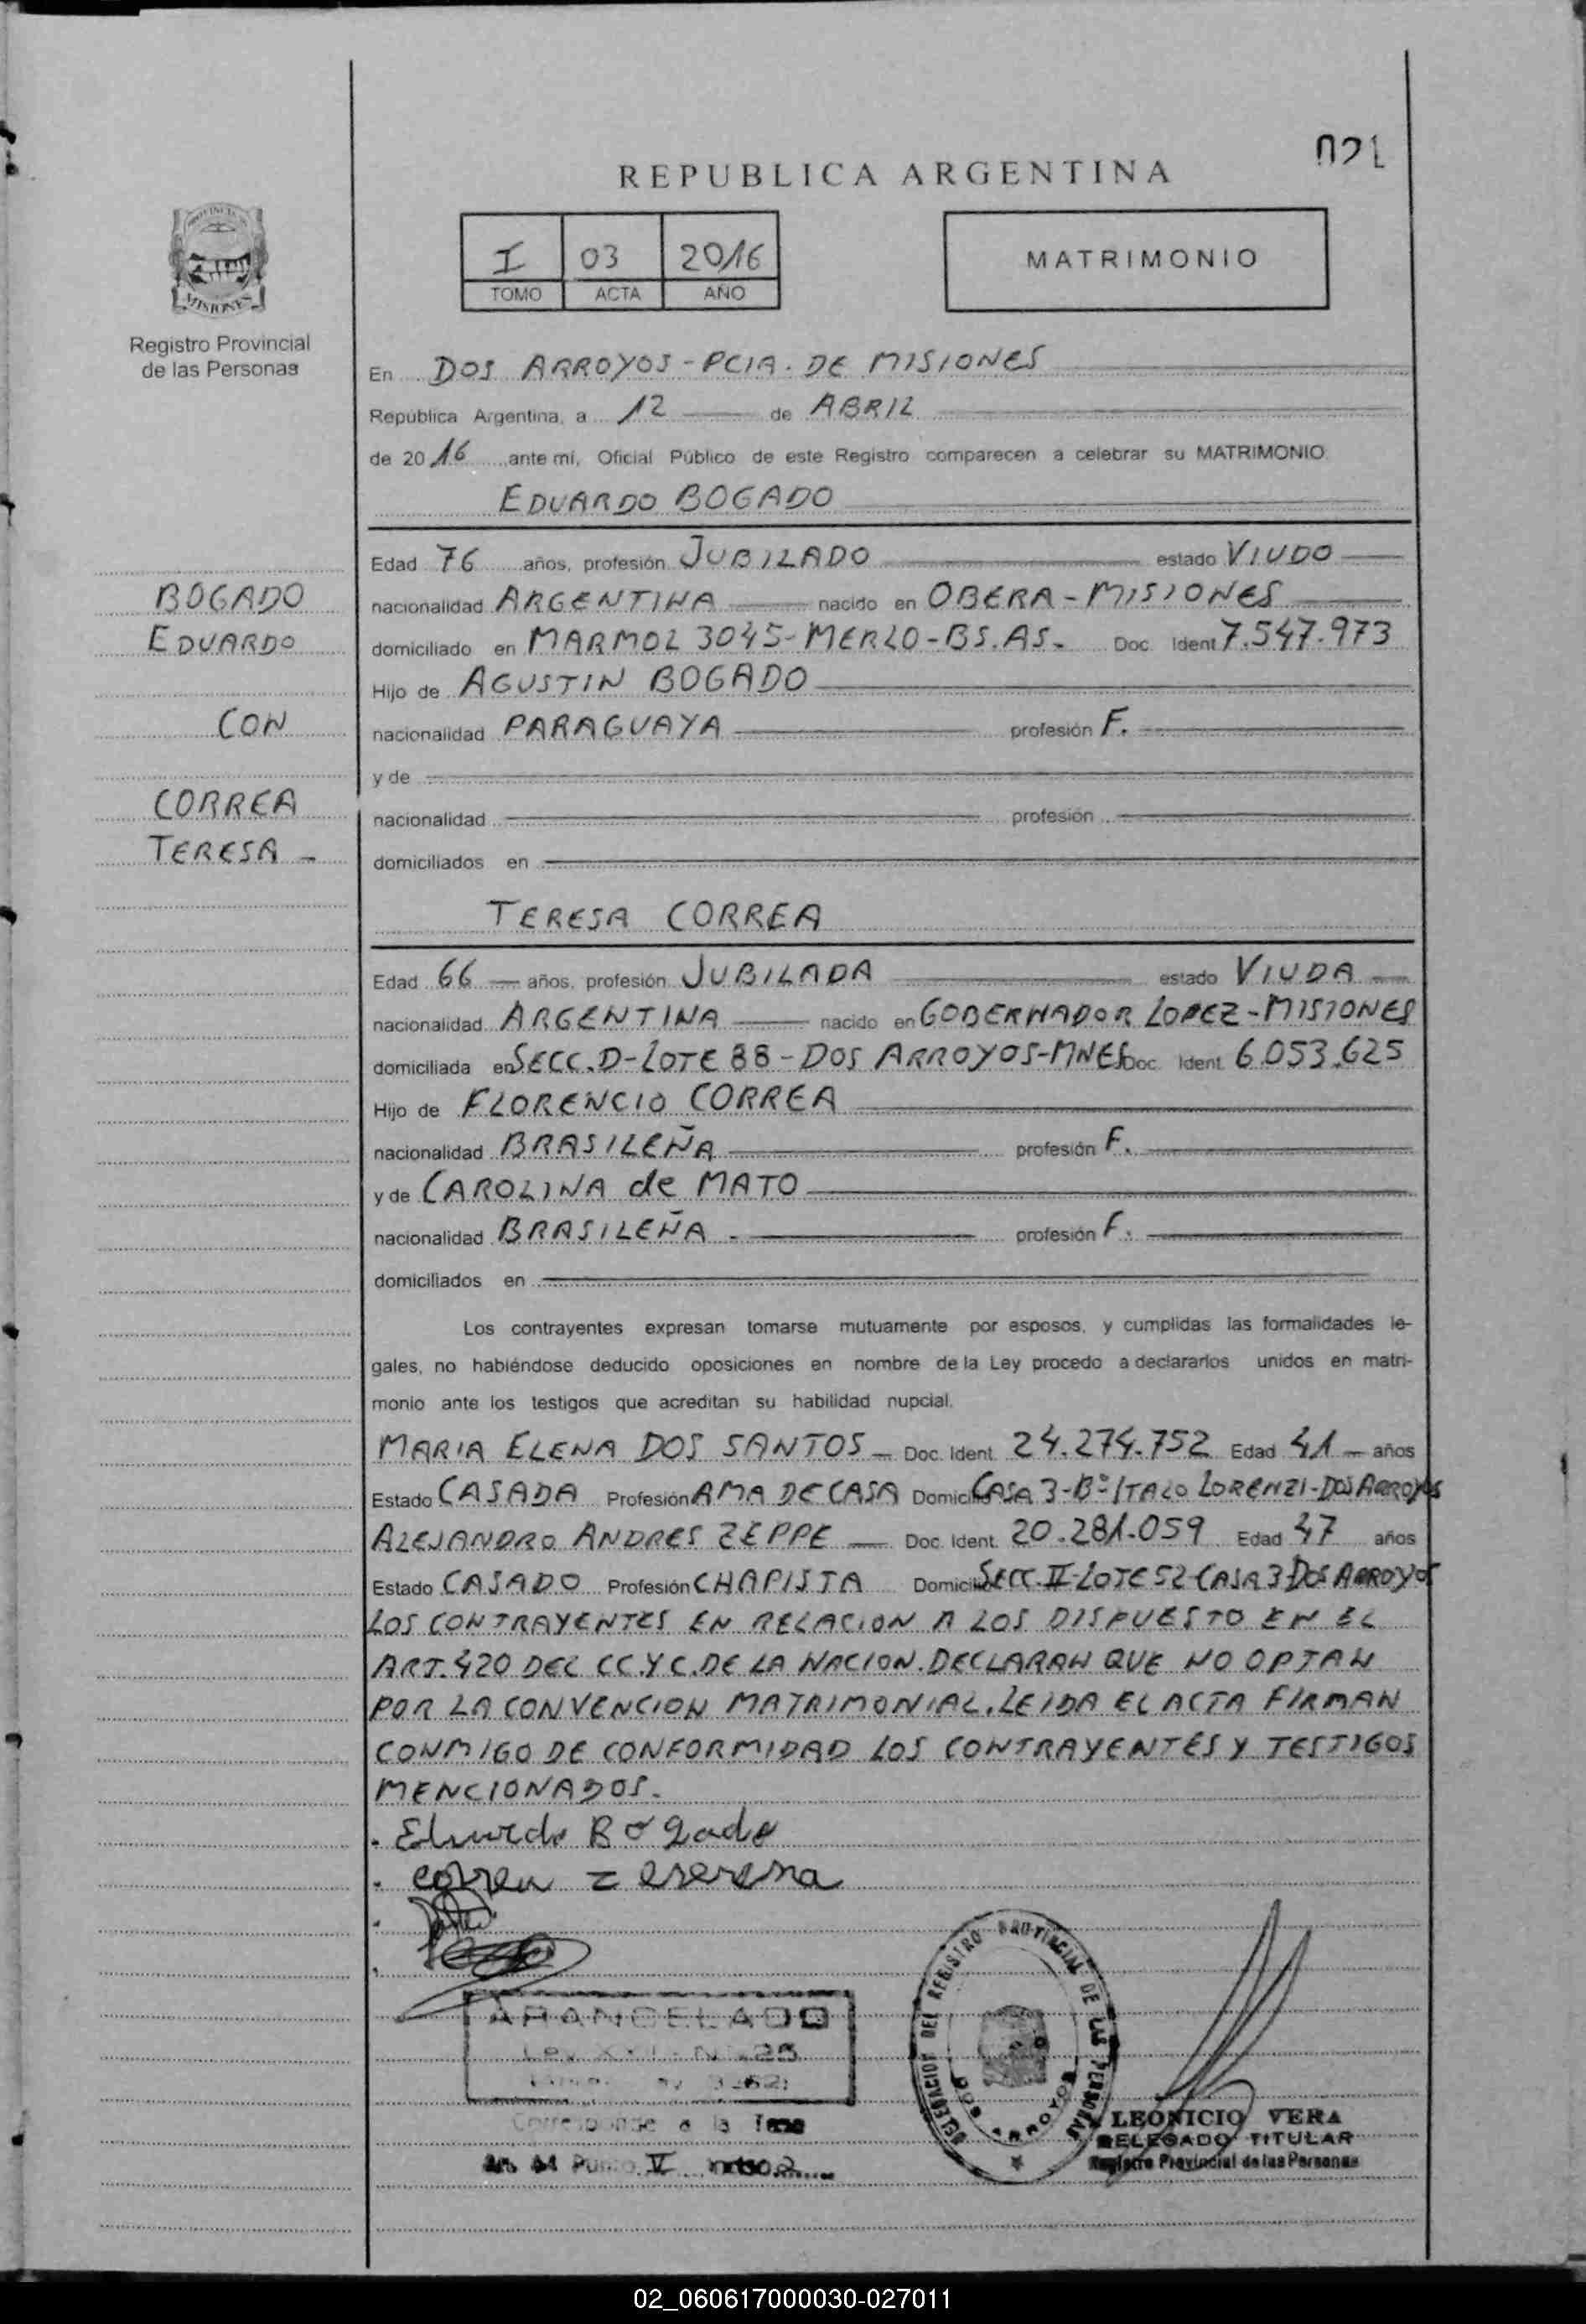 021
REPUBLICA ARGENTINA
I 03 2016
TOMO ACTA AÑO
MATRIMONIO
MISIONES
Registro Provincial
de las Personas
En DOS ARROYOS - PCIA. DE MISIONES
República Argentina, a 12 de ABRIL
de 2016 ante mí, Oficial Público de este Registro comparecen a celebrar su MATRIMONIO
EDUARDO BOGADO
Edad 76 años, profesión JUBILADO estado VIUDO
nacionalidad ARGENTINA nacido en OBERA - MISIONES
domiciliado en MARMOL 3045 - MERLO - BS. AS. Doc. Ident 7.547.973
Hijo de AGUSTIN BOGADO
nacionalidad PARAGUAYA profesión F.
y de
nacionalidad profesión
domiciliados en
BOGADO
EDUARDO
CON
CORREA
TERESA -
TERESA CORREA
Edad 66 años, profesión JUBILADA estado VIUDA
nacionalidad ARGENTINA nacido en GOBERNADOR LOPEZ - MISIONES
domiciliada en SECC. D - LOTE 88 - DOS ARROYOS - MNES Doc. Ident. 6.053.625
Hijo de FLORENCIO CORREA
nacionalidad BRASILEÑA profesión F.
y de CAROLINA de MATO
nacionalidad BRASILEÑA . profesión F.
domiciliados en
Los contrayentes expresan tomarse mutuamente por esposos, y cumplidas las formalidades le-
gales, no habiéndose deducido oposiciones en nombre de la Ley procedo a declararlos unidos en matri-
monio ante los testigos que acreditan su habilidad nupcial.
MARIA ELENA DOS SANTOS - Doc. Ident. 24.274.752 Edad 41 - años
Estado CASADA Profesión AMA DE CASA Domicilio CASA 3 - Bº ITALO LORENZI - DOS ARROYOS
ALEJANDRO ANDRES ZEPPE - Doc. Ident. 20.281.059 Edad 47 años
Estado CASADO Profesión CHAPISTA Domicilio SECC. II - LOTE 52 - CASA 3 - DOS ARROYOS
LOS CONTRAYENTES EN RELACION A LOS DISPUESTO EN EL
ART. 420 DEL CC. Y C. DE LA NACION. DECLARAN QUE NO OPTAN
POR LA CONVENCION MATRIMONIAL. LEIDA EL ACTA FIRMAN
CONMIGO DE CONFORMIDAD LOS CONTRAYENTES Y TESTIGOS
MENCIONADOS.
Bogado
correa
ARANCELADO
Corresponde a la Tasa
Punto V inciso 2
DELEGACION DEL REGISTRO PROVINCIAL DE LAS PERSONAS
DOS ARROYOS
LEONICIO VERA
DELEGADO TITULAR
Registro Provincial de las Personas
02_060617000030-027011